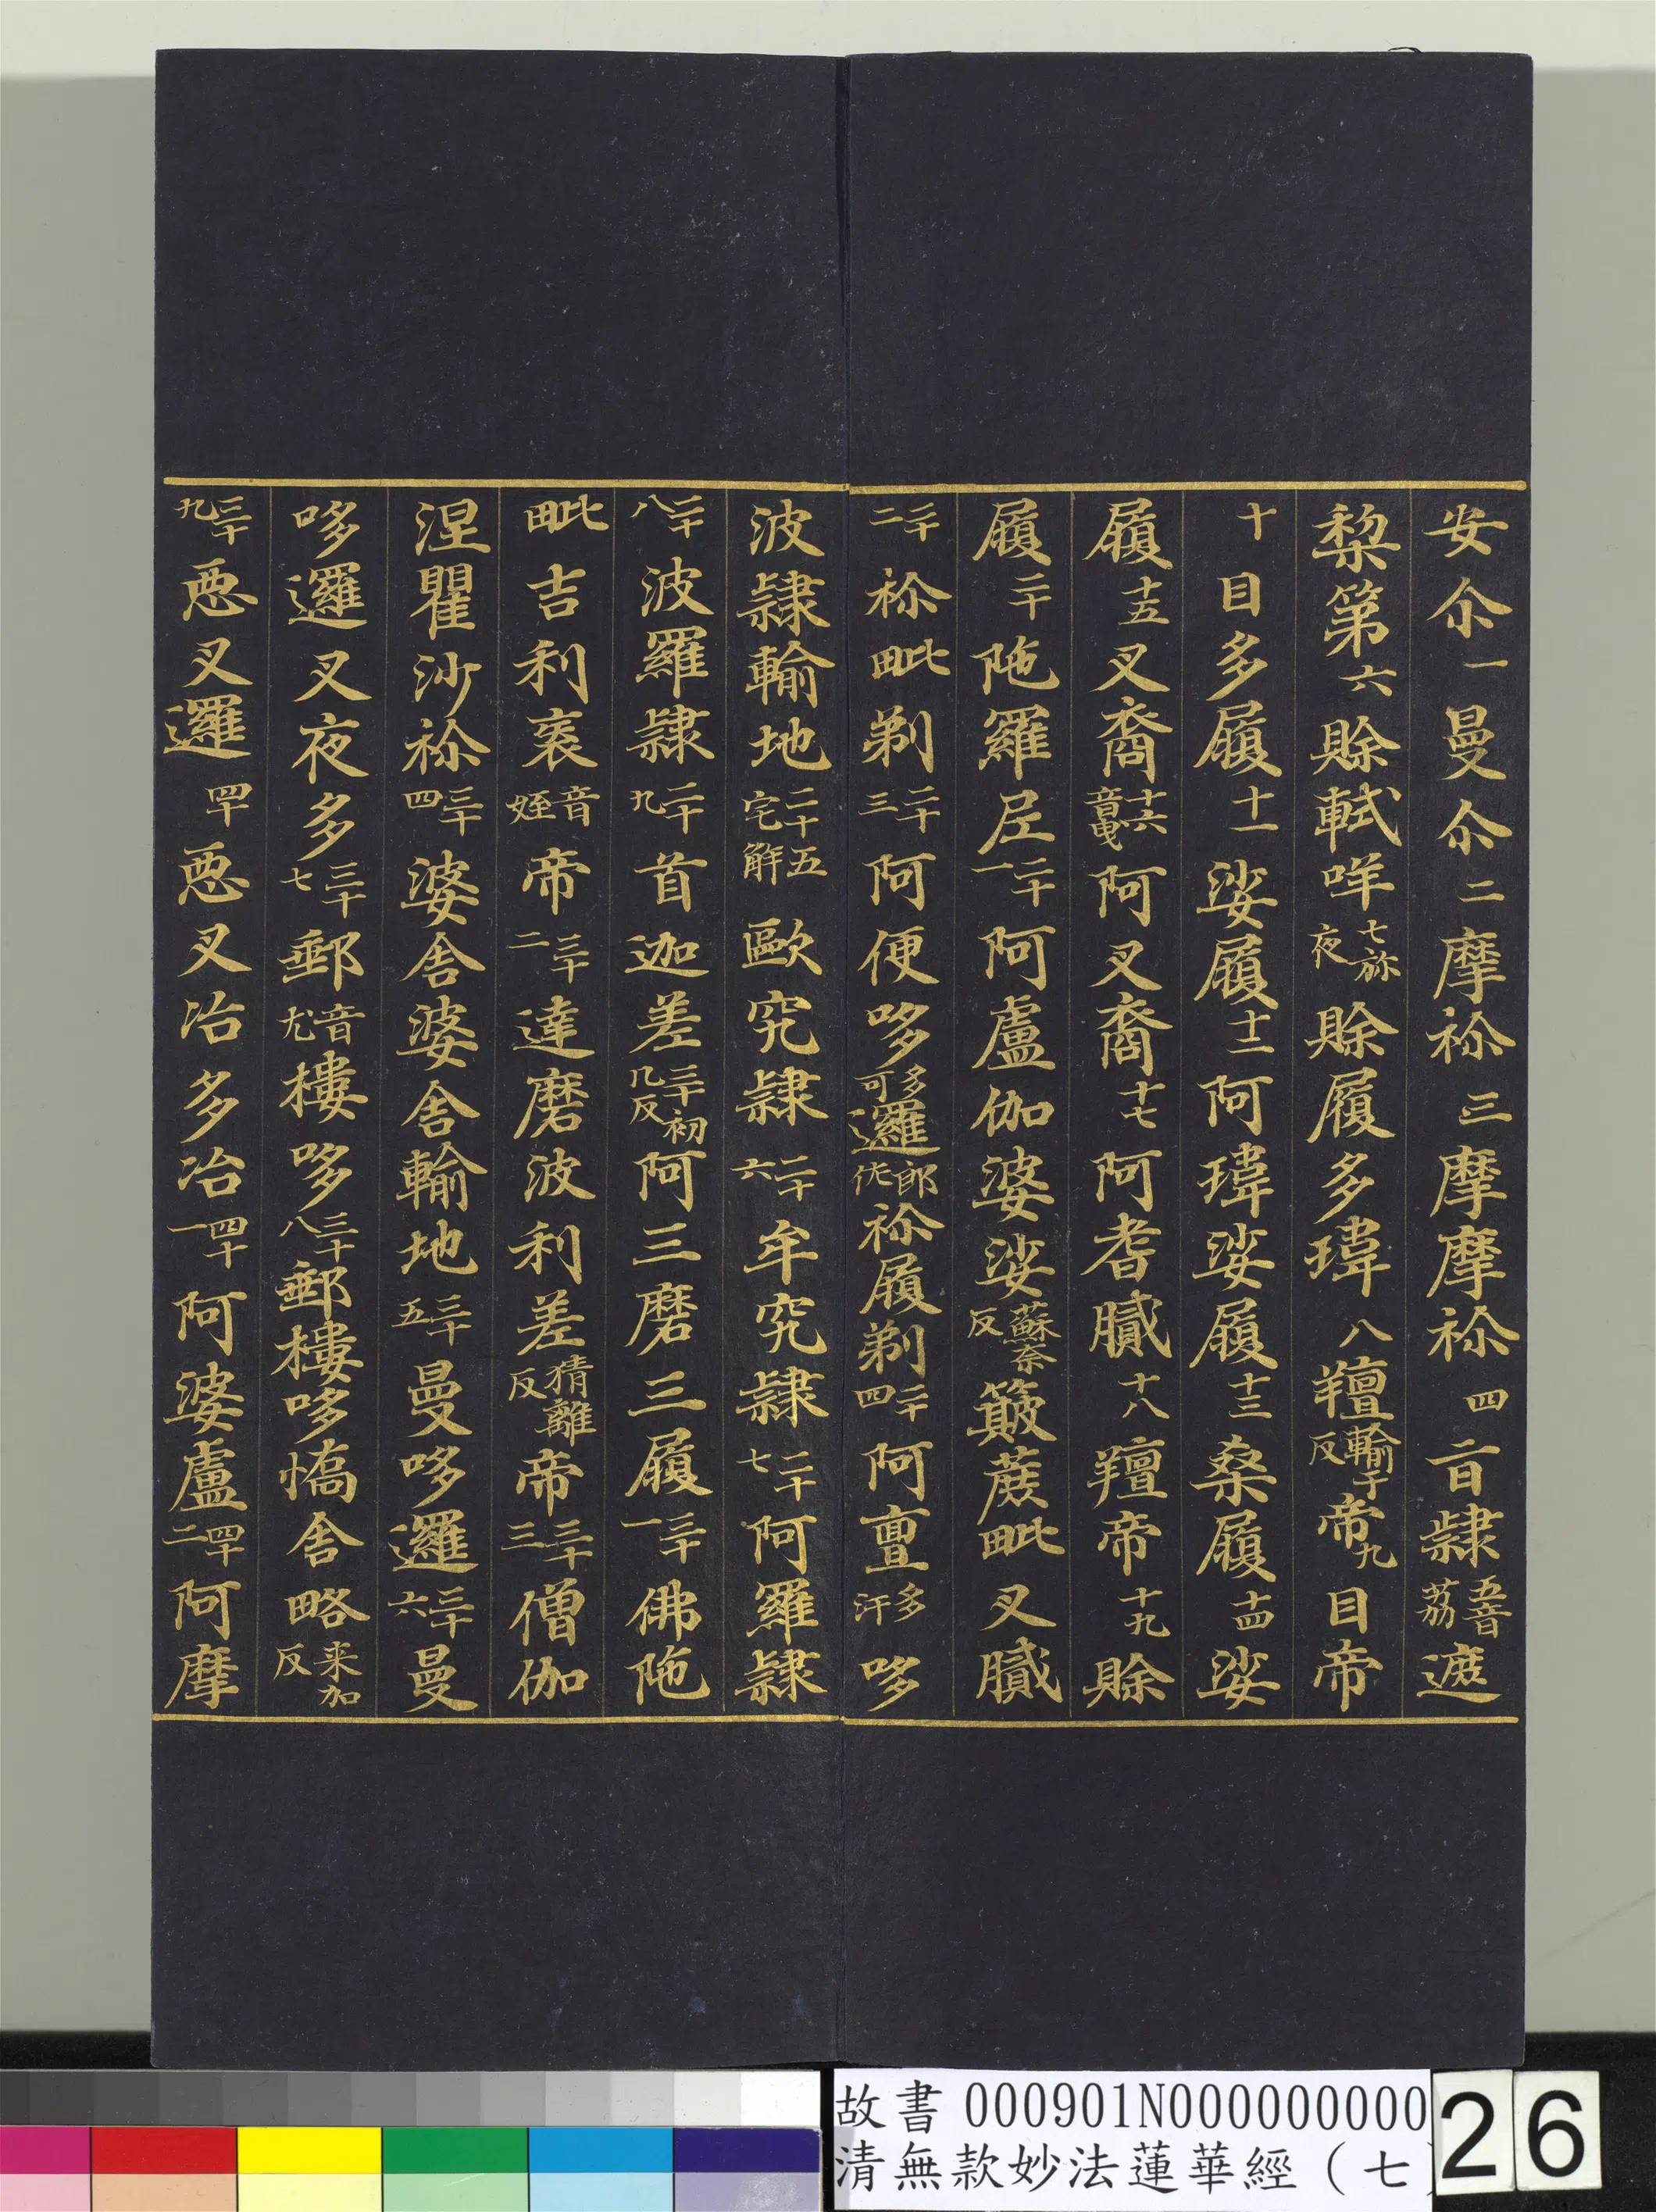 安尒一曼尒二摩祢三摩摩祢四旨隸五音茘遮
棃第六賒𫐉咩七祢夜賒履多瑋八羶輸千反帝九目帝
十目多履十一娑履十二阿瑋娑履十三桑履十四娑
履十五叉裔十六音曳阿叉裔十七阿耆膩十八羶帝十九賒
履二十陁羅尼二十一阿盧伽婆娑蘇奈反簸蔗毗叉膩
二十二祢毗剃二十三阿便哆多可邏郎佐祢履剃二十四阿亶多汗哆
波隸輸地二十五宅解歐究隸二十六牟究隸二十七阿羅隸
二十八波羅隸二十九首迦差三十初几反阿三磨三履三十一佛陁
毗吉利袠音姪帝三十二達磨波利差猜離反帝三十三僧伽
涅瞿沙祢三十四婆舍婆舍輸地三十五曼哆邏三十六曼
哆邏叉夜多三十七郵音尤樓哆三十八郵樓哆憍舍略来加反
三十九惡叉邏四十惡叉冶多冶四十一阿婆盧四十二阿摩
故書 000901N000000000
清無款妙法蓮華經（七
26